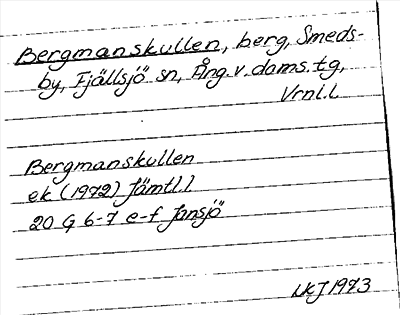 Bergmanskullen, berg, Smeds-
by, Fjällsjö sn, Ång. v. doms. tg,
Vrnl. l.
Bergmanskullen
ek (1972) Jämtl. l
20 G 6-7 e-f Jansjö
1973